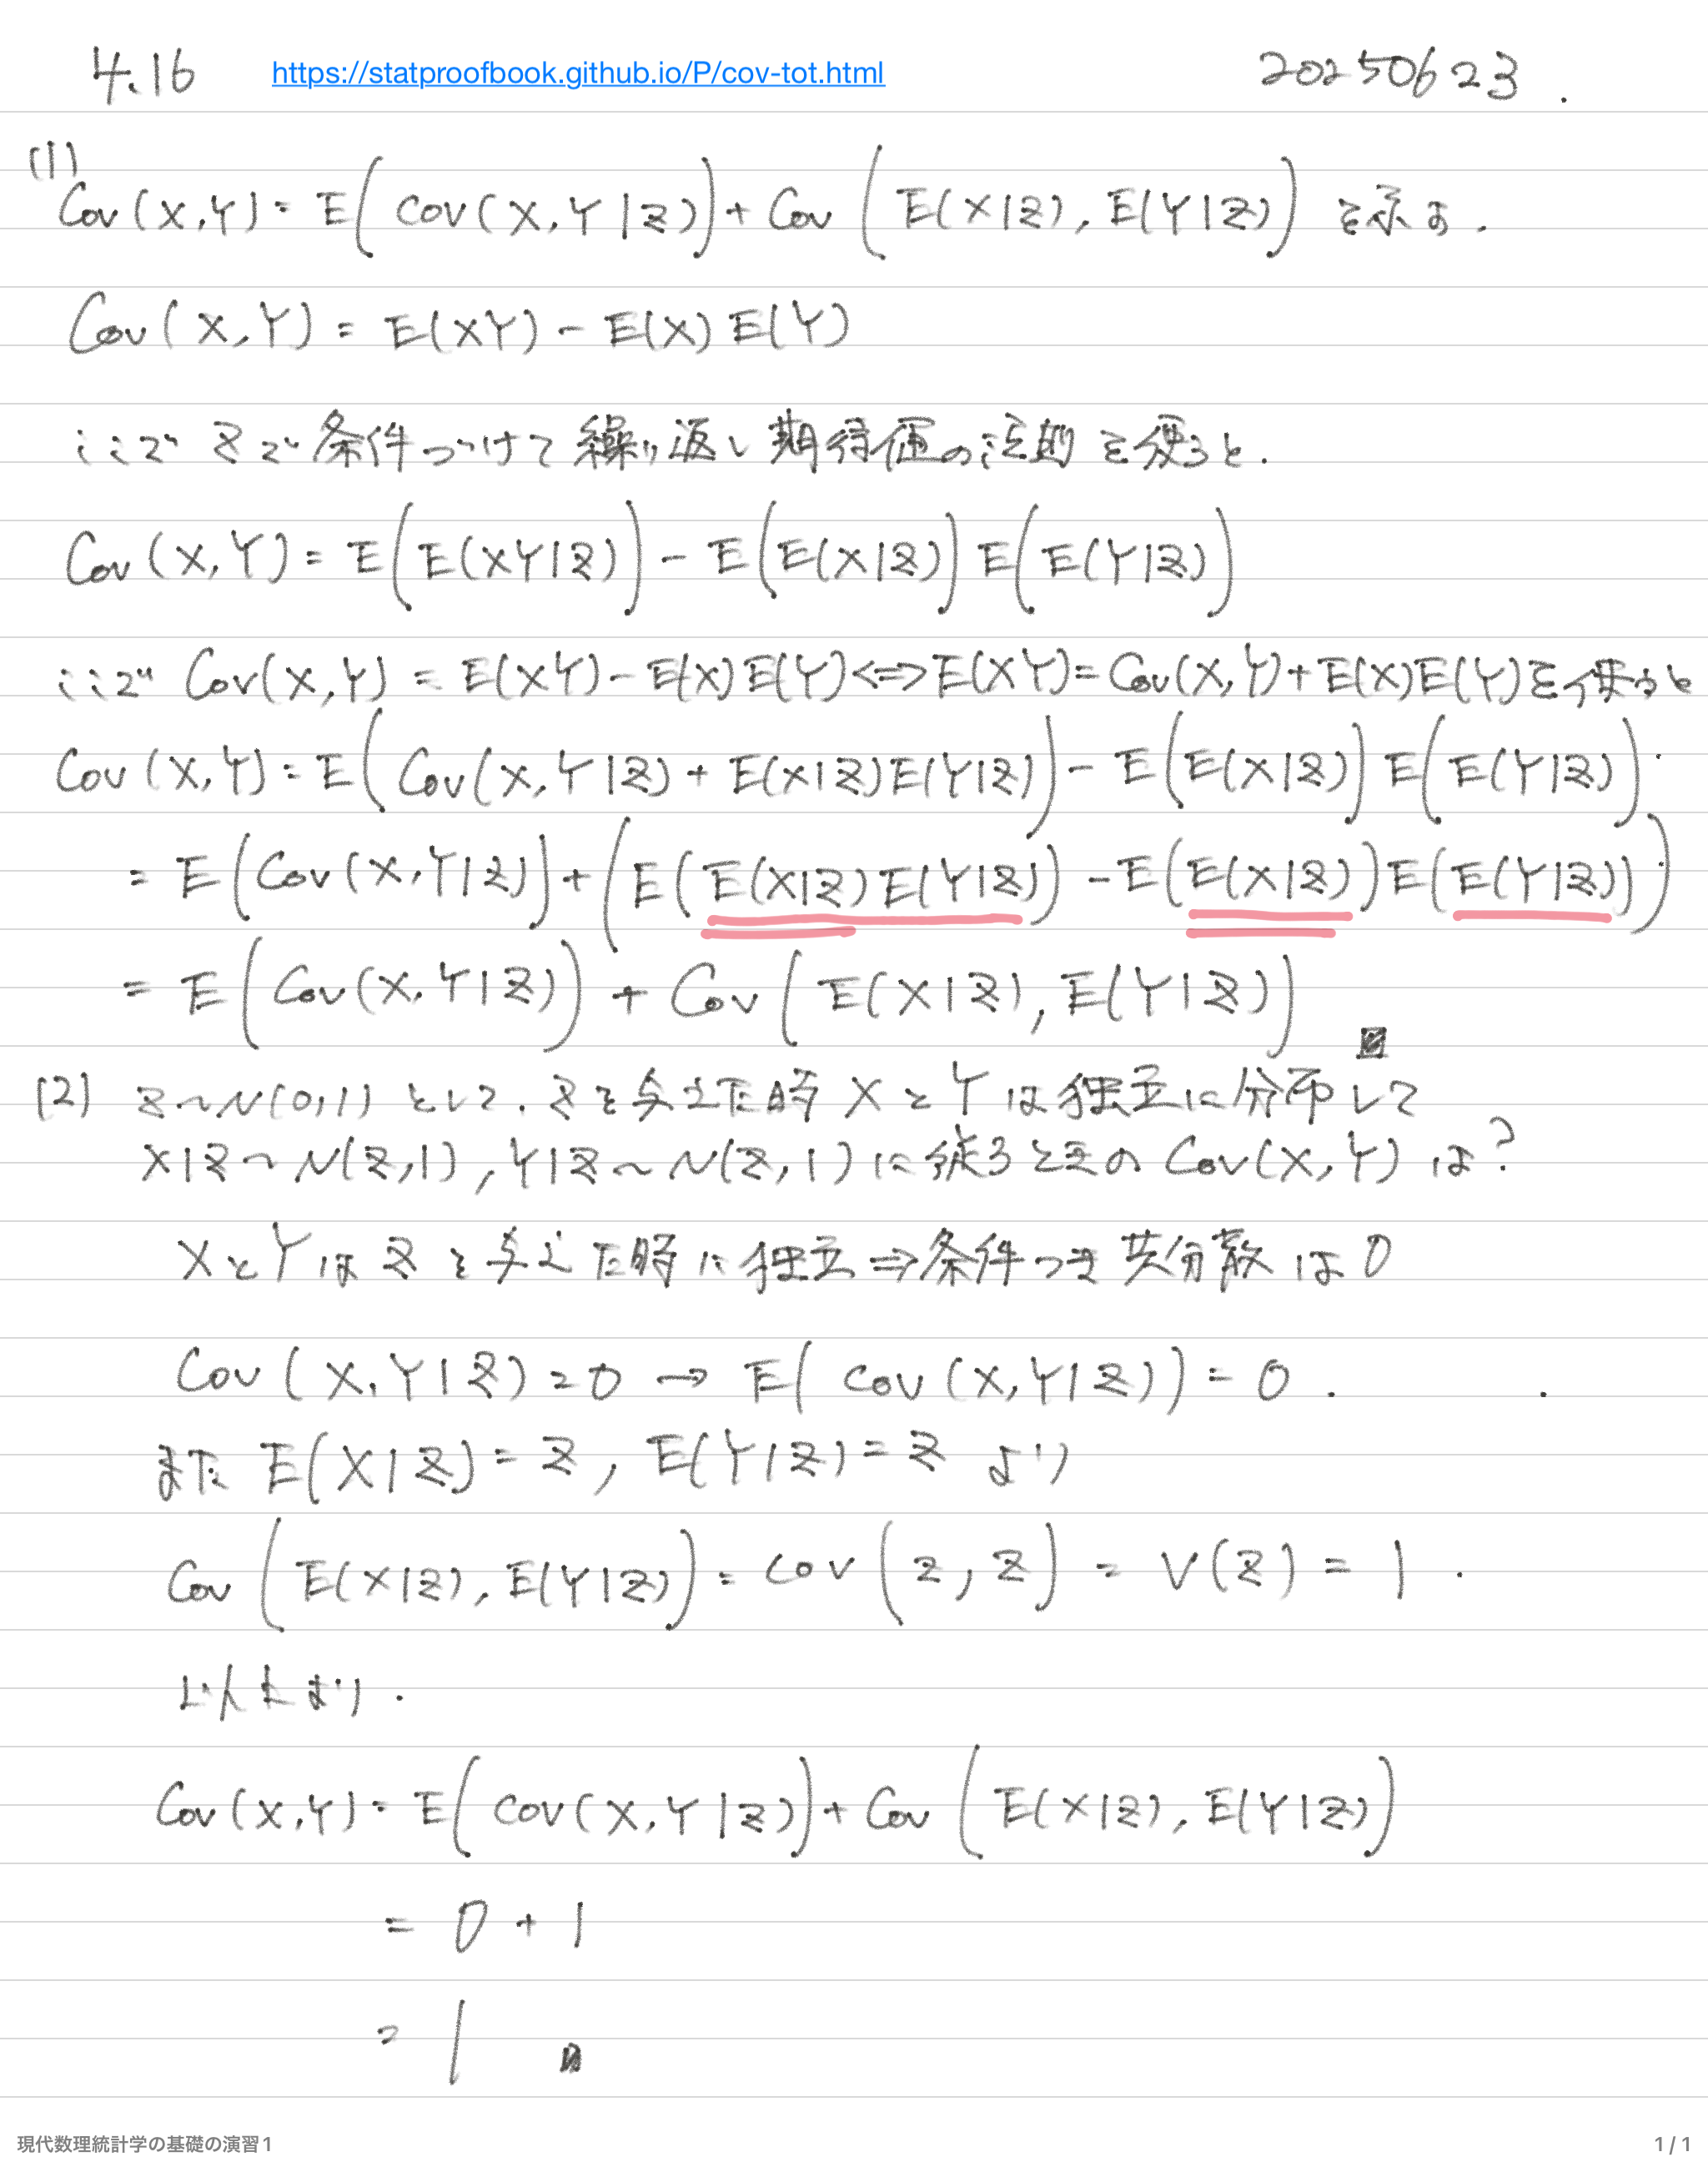 4.16 https://statproofbook.github.io/P/cov-tot.html 20250623.
(1)
Cov(X,Y) = E(Cov(X,Y|Z)) + Cov(E(X|Z), E(Y|Z)) を示す.
Cov(X,Y) = E(XY) - E(X)E(Y)
ここで Zで条件つけて繰り返し期待値の法則を使うと.
Cov(X,Y) = E(E(XY|Z)) - E(E(X|Z))E(E(Y|Z))
ここで Cov(X,Y) = E(XY)-E(X)E(Y) <=> E(XY)=Cov(X,Y)+E(X)E(Y)を使うと
Cov(X,Y) = E(Cov(X,Y|Z) + E(X|Z)E(Y|Z)) - E(E(X|Z))E(E(Y|Z)).
= E(Cov(X,Y|Z)) + (E(E(X|Z)E(Y|Z)) - E(E(X|Z))E(E(Y|Z)))
= E(Cov(X,Y|Z)) + Cov(E(X|Z), E(Y|Z))
(2) Z~N(0,1)として. Zを与えた時 XとYは独立に分布して
X|Z~N(Z,1), Y|Z~N(Z,1)に従うときの Cov(X,Y)は?
XとYは Zを与えた時に独立⇒条件つき共分散は0
Cov(X,Y|Z)=0 → E(Cov(X,Y|Z)) = 0.
また E(X|Z) = Z, E(Y|Z) = Z より
Cov(E(X|Z), E(Y|Z)) = Cov(Z, Z) = V(Z) = 1.
以上より.
Cov(X,Y) = E(Cov(X,Y|Z)) + Cov(E(X|Z), E(Y|Z))
= 0 + 1
= 1
現代数理統計学の基礎の演習1 1 / 1